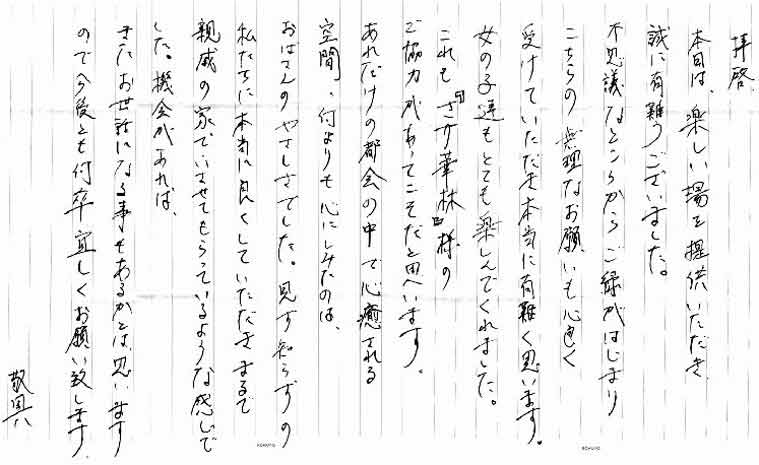 拝啓
本日は、楽しい場を提供いただき、
誠に有難うございました。
不思議なところからご縁がはじまり
こちらの無理なお願いも心良く
受けていただき本当に有難く思います。
女の子達もとても楽しんでくれました。
これも『さか華林』様の
ご協力があってこそだと思います。
あれだけの都会の中で心癒される
空間、何よりも心にしみたのは、
おばさんのやさしさでした。見ず知らずの
私たちに本当に良くしていただきまるで
親戚の家でいさせてもらっているような感じで
した。機会があれば、
またお世話になる事もあるかとは思います
ので今後とも何卒宜しくお願い致します。
敬具
KOKUYO
KOKUYO